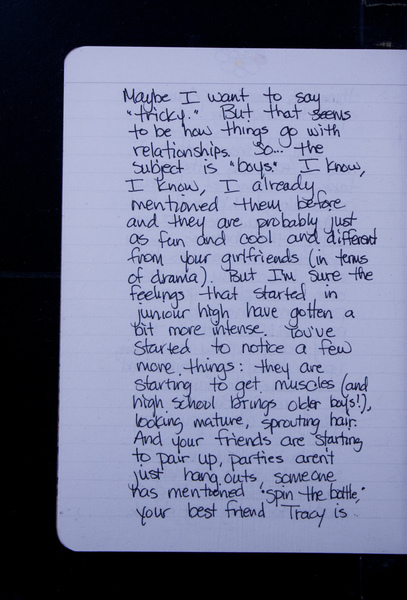 Maybe I want to say
"tricky." But that seems
to be how things go with
relationships. So... the
subject is "boys." I know,
I know, I already
mentioned them before
and they are probably just
as fun and cool and different
from your girlfriends (in terms
of drama). But I'm sure the
feelings that started in
juniour high have gotten a
bit more intense. You've
started to notice a few
more things: they are
starting to get muscles (and
high school brings older boys!),
looking mature, sprouting hair.
And your friends are starting
to pair up, parties aren't
just hang outs, someone
has mentioned "spin the bottle,"
your best friend Tracy is